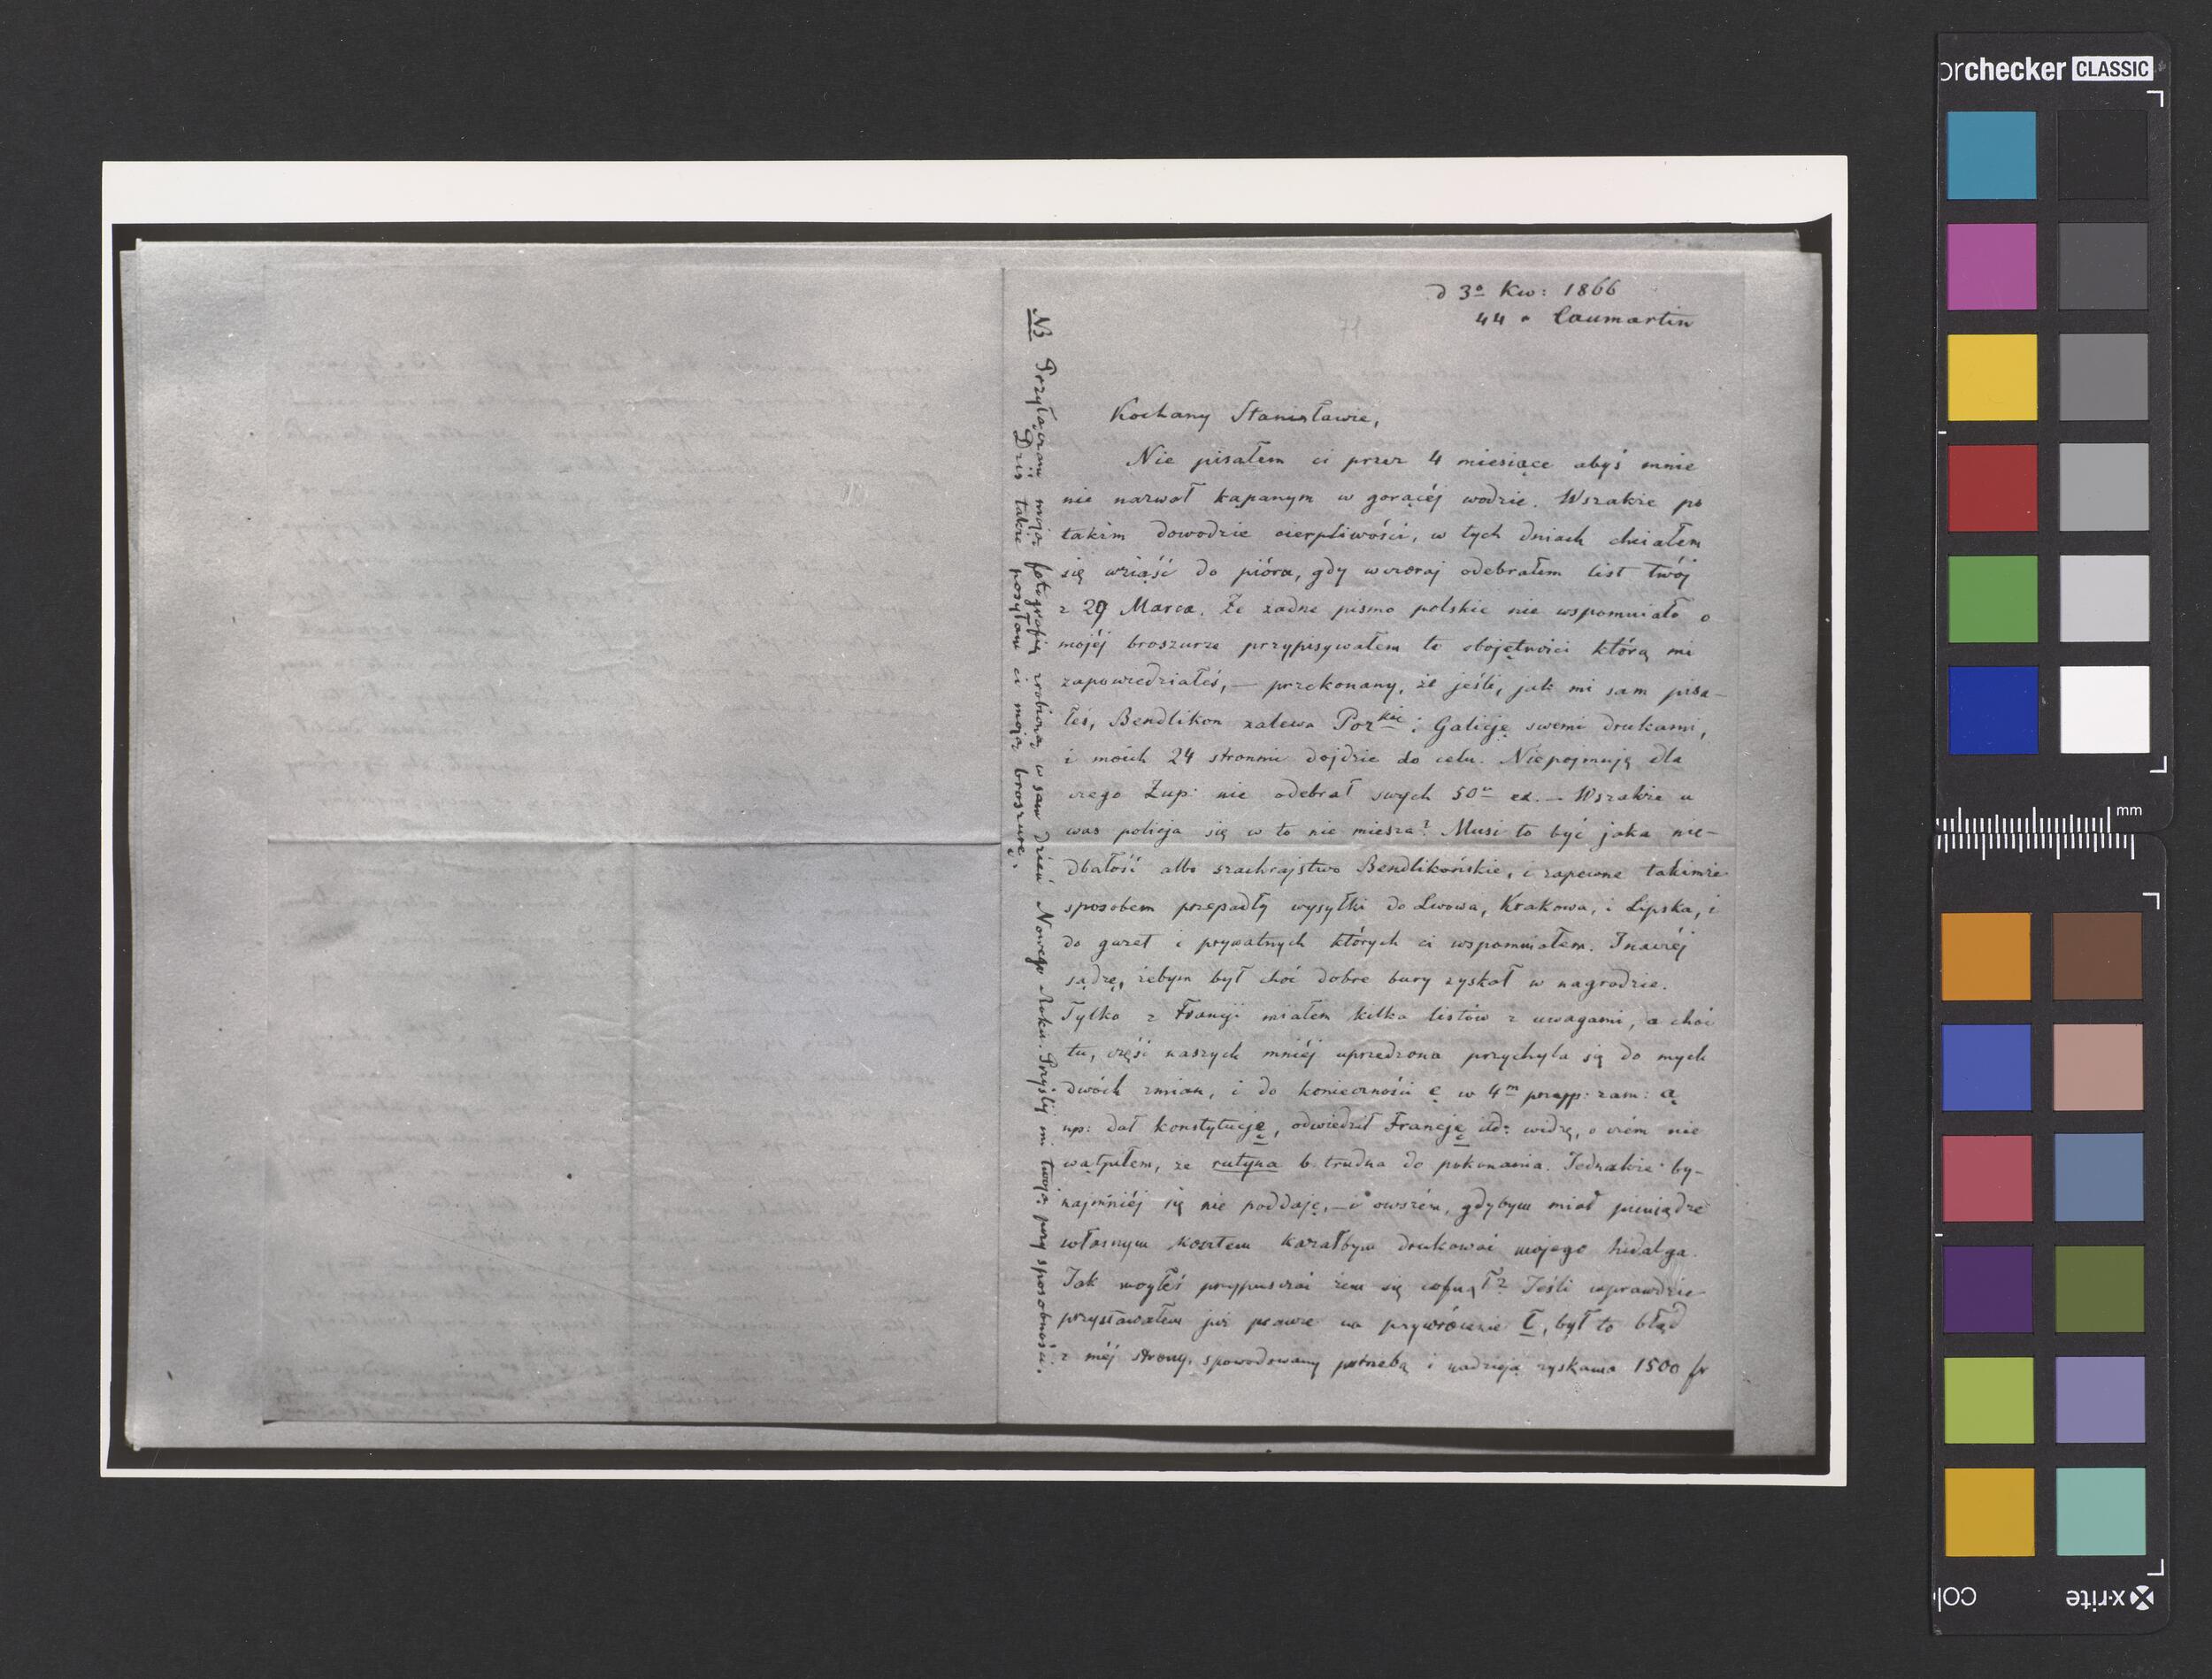 d 3º Kw: 1866
44 r Caumartin
Kochany Stanisławie,
Nie pisałem ci przez 4 miesiące abyś mnie
nie nazwał kąpanym w gorącéj wodzie. Wszakże po
takim dowodzie cierpliwości, w tych dniach chciałem
się wziąść do pióra, gdy wczoraj odebrałem list twój
z 29 Marca. Że żadne pismo polskie nie wspomniało o
mojéj broszurze przypisywałem to obojętności którą mi
zapowiedziałeś, — przekonany, że jeśli, jak mi sam pisa-
łeś, Bendlikon zalewa Poz kie i Galicję swemi drukami,
i moich 24 stronnic dojdzie do celu. Niepojmuję dla
czego Żup: nie odebrał swych 50u ex. — Wszakże u
was policja się w to nie miesza? Musi to być jaka nie-
dbałość albo szachrajstwo Bendlikońskie, i zapewne takimże
sposobem przepadły wysyłki do Lwowa, Krakowa, i Lipska, i
do gazet i prywatnych których ci wspomniałem. Inaczéj
sądzę, żebym był choć dobre bury zyskał w nagrodzie.
Tylko z Francji miałem kilka listów z uwagami, a choć
tu, część naszych mniéj uprzedzona przychyla się do mych
dwóch zmian, i do konieczności ę w 4m przypp: zam: ą
np: dał konstytucję, odwiedził Francję itd: widzę, o czém nie
wątpiłem, że rutyna b. trudna do pokonania. Jednakże by-
najmniéj się nie poddaję, — i owszem, gdybym miał pieniądze
własnym kosztem kazałbym drukować mojego hidalga.
Jak mogłeś przypuszczać żem się cofnął? Jeśli wprawdzie
przystawałem już prawie na przywrócenie Ł, był to błąd
z méj strony, spowodowany potrzebą i nadzieją zyskania 1500 fr
NB Przyłączam moją fotografię zrobioną w sam dzień Nowego Roku. Przyślij mi twoją przy sposobności.
Dziś także posyłam ci moją broszurę.
orchecker CLASSIC
mm
x-rite
col